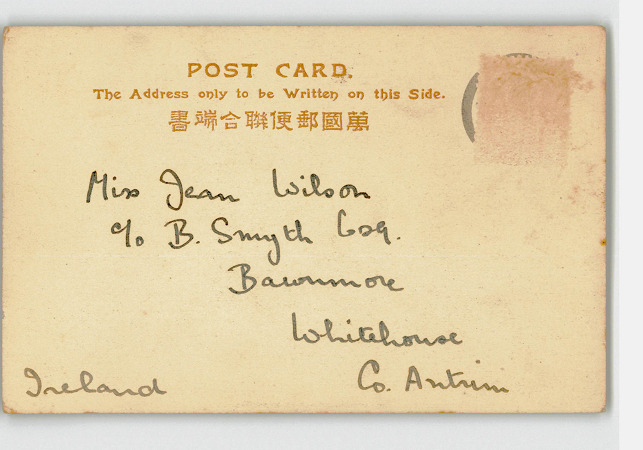 POST CARD.
The Address only to be Written on this Side.
書端合聯便郵國萬
Miss Jean Wilson
c/o B. Smyth Esq.
Bawnmore
Whitehouse
Co. Antrim
Ireland